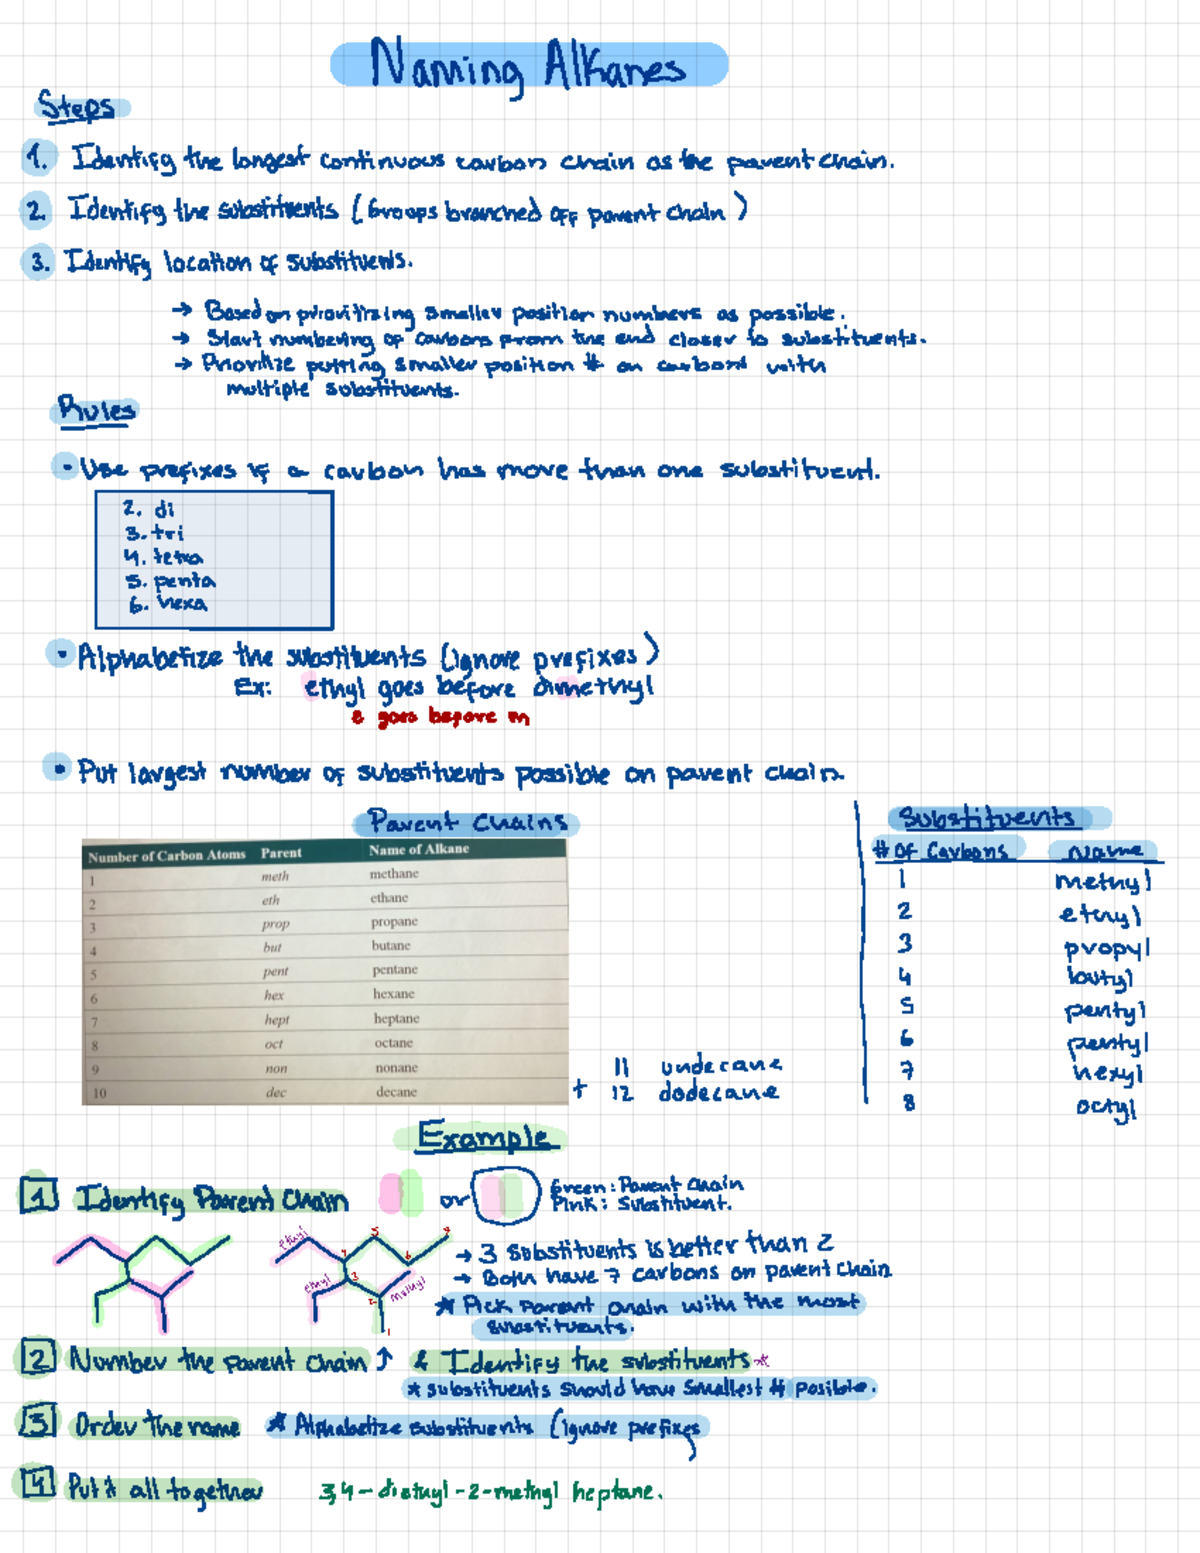 Naming Alkanes
Steps
1. Identify the longest continuous carbon chain as the parent chain.
2. Identify the substituents (Groups branched off parent chain)
3. Identify location of substituents.
→ Based on prioritizing smaller position numbers as possible.
→ Start numbering of carbons from the end closer to substituents.
→ Prioritize putting smaller position # on carbons with
multiple substituents.
Rules
• Use prefixes if a carbon has more than one substituent.
2. di
3. tri
4. tetra
5. penta
6. hexa
• Alphabetize the substituents (ignore prefixes)
Ex: ethyl goes before dimethyl
e goes before m
• Put largest number of substituents possible on parent chain.
Parent Chains
Number of Carbon Atoms Parent Name of Alkane
1 meth methane
2 eth ethane
3 prop propane
4 but butane
5 pent pentane
6 hex hexane
7 hept heptane
8 oct octane
9 non nonane
10 dec decane
+ 11 undecane
12 dodecane
Substituents
# Of Carbons Name
1 methyl
2 ethyl
3 propyl
4 butyl
5 pentyl
6 pentyl
7 hexyl
8 octyl
Example
1 Identify Parent Chain or Green: Parent chain
Pink: Substituent.
ethyl ethyl methyl
1 2 3 4 5 6 7
→ 3 substituents is better than 2
→ Both have 7 carbons on parent chain
* Pick parent chain with the most
substituents.
2 Number the parent chain ↑ & Identify the substituents *
* substituents should have smallest # posible.
3 Order the name * Alphabetize substituents (ignore prefixes)
4 Put it all together 3,4-diethyl-2-methyl heptane.